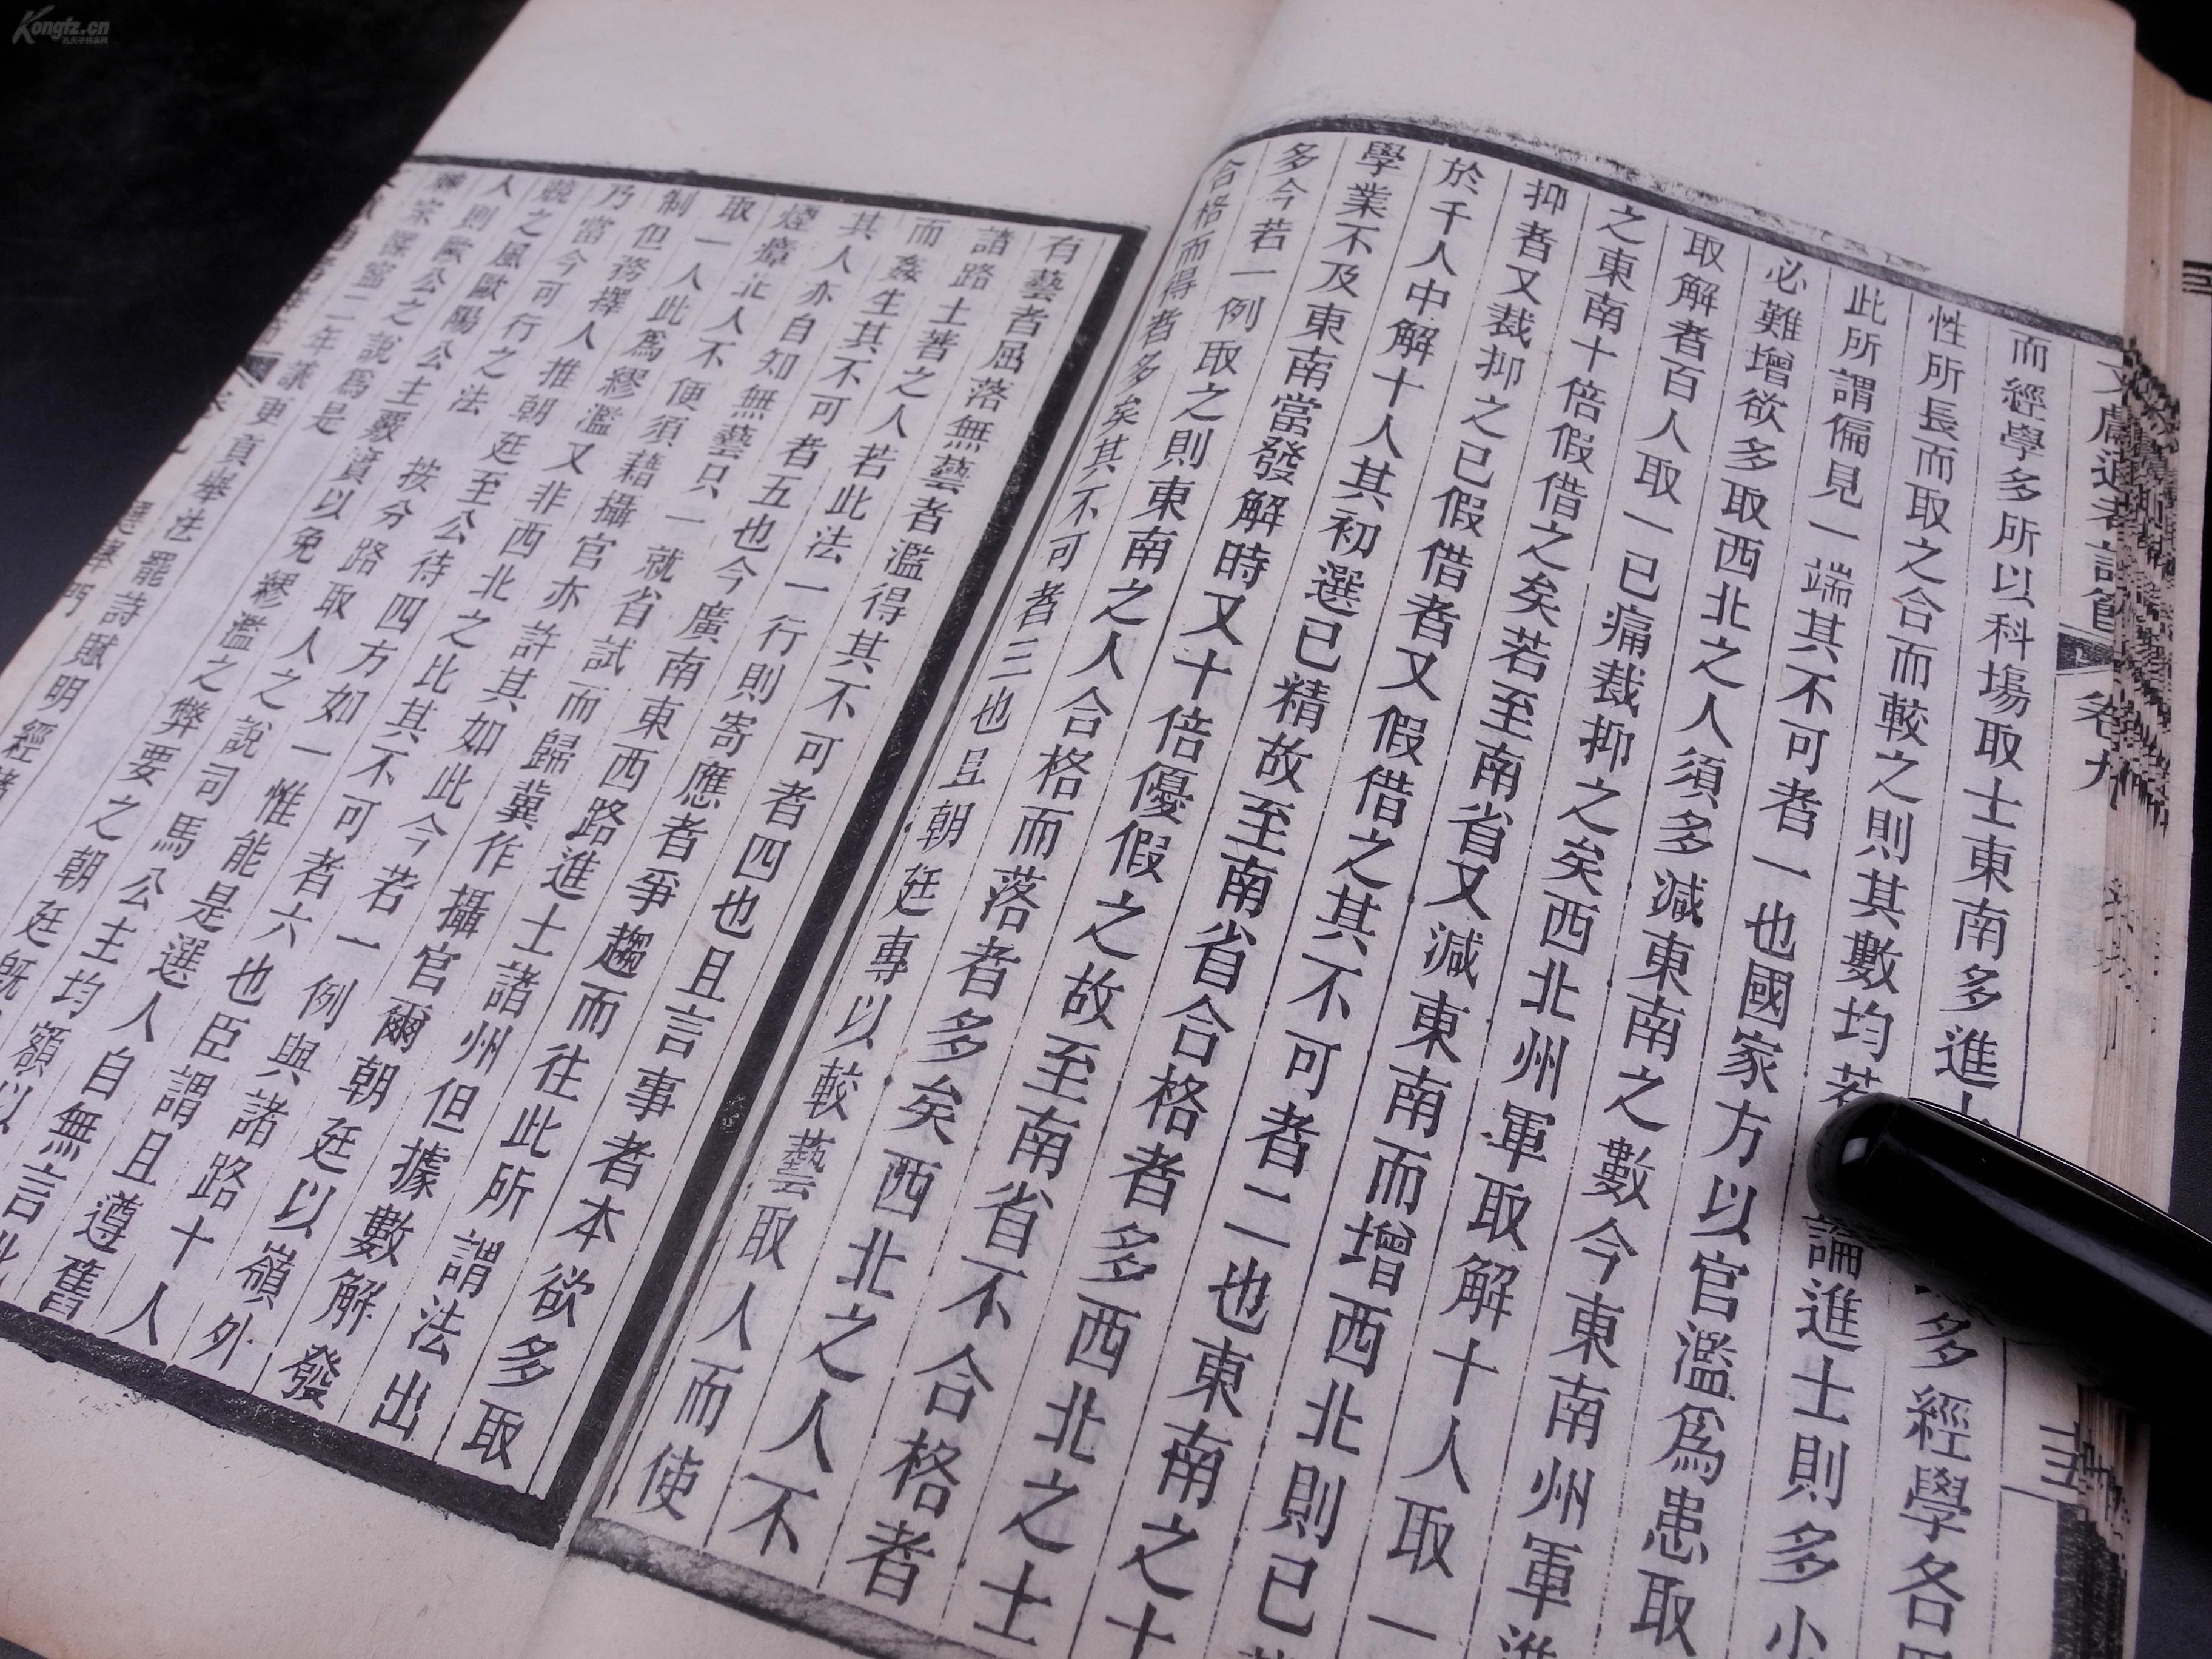 Kongfz.cn
文獻通考詳節
卷九
而經學多所以科場取士東南多進士
多經學各因
性所長而取之今合而較之則其數均若
論進士則多少
此所謂偏見一端其不可者一也國家方以官濫爲患取
必難增欲多取西北之人須多減東南之數今東南州軍進
取解者百人取一已痛裁抑之矣西北州軍取解十人取一
之東南十倍假借之矣若至南省又減東南而增西北則已
抑者又裁抑之已假借者又假借之其不可者二也東南之士
於千人中解十人其初選已精故至南省合格者多西北之士
學業不及東南當發解時又十倍優假之故至南省不合格者
多今若一例取之則東南之人合格而落者多矣西北之人不
合格而得者多矣其不可者三也且朝廷專以較藝取人而使
有藝者屈落無藝者濫得其不可者四也且言事者本欲多取
諸路土著之人若此法一行則寄應者爭趨而往此所謂法出
而姦生其不可者五也今廣南東西路進士諸州但據數解發
其人亦自知無藝只一就省試而歸冀作攝官爾朝廷以嶺外
煙瘴北人不便須藉攝官亦許其如此今若一例與諸路十人
取一人此爲繆濫又非西北之比其不可者六也臣謂且遵舊
制但務擇人推朝廷至公待四方如一惟能是選人自無言此
乃當今可行之法
按分路取人之說司馬公主均額以
競之風歐陽公主覈實以免繆濫之弊要之朝廷既
人則歐公之說爲是
神宗熙寧二年議更貢舉法罷詩賦明經諸
選舉門